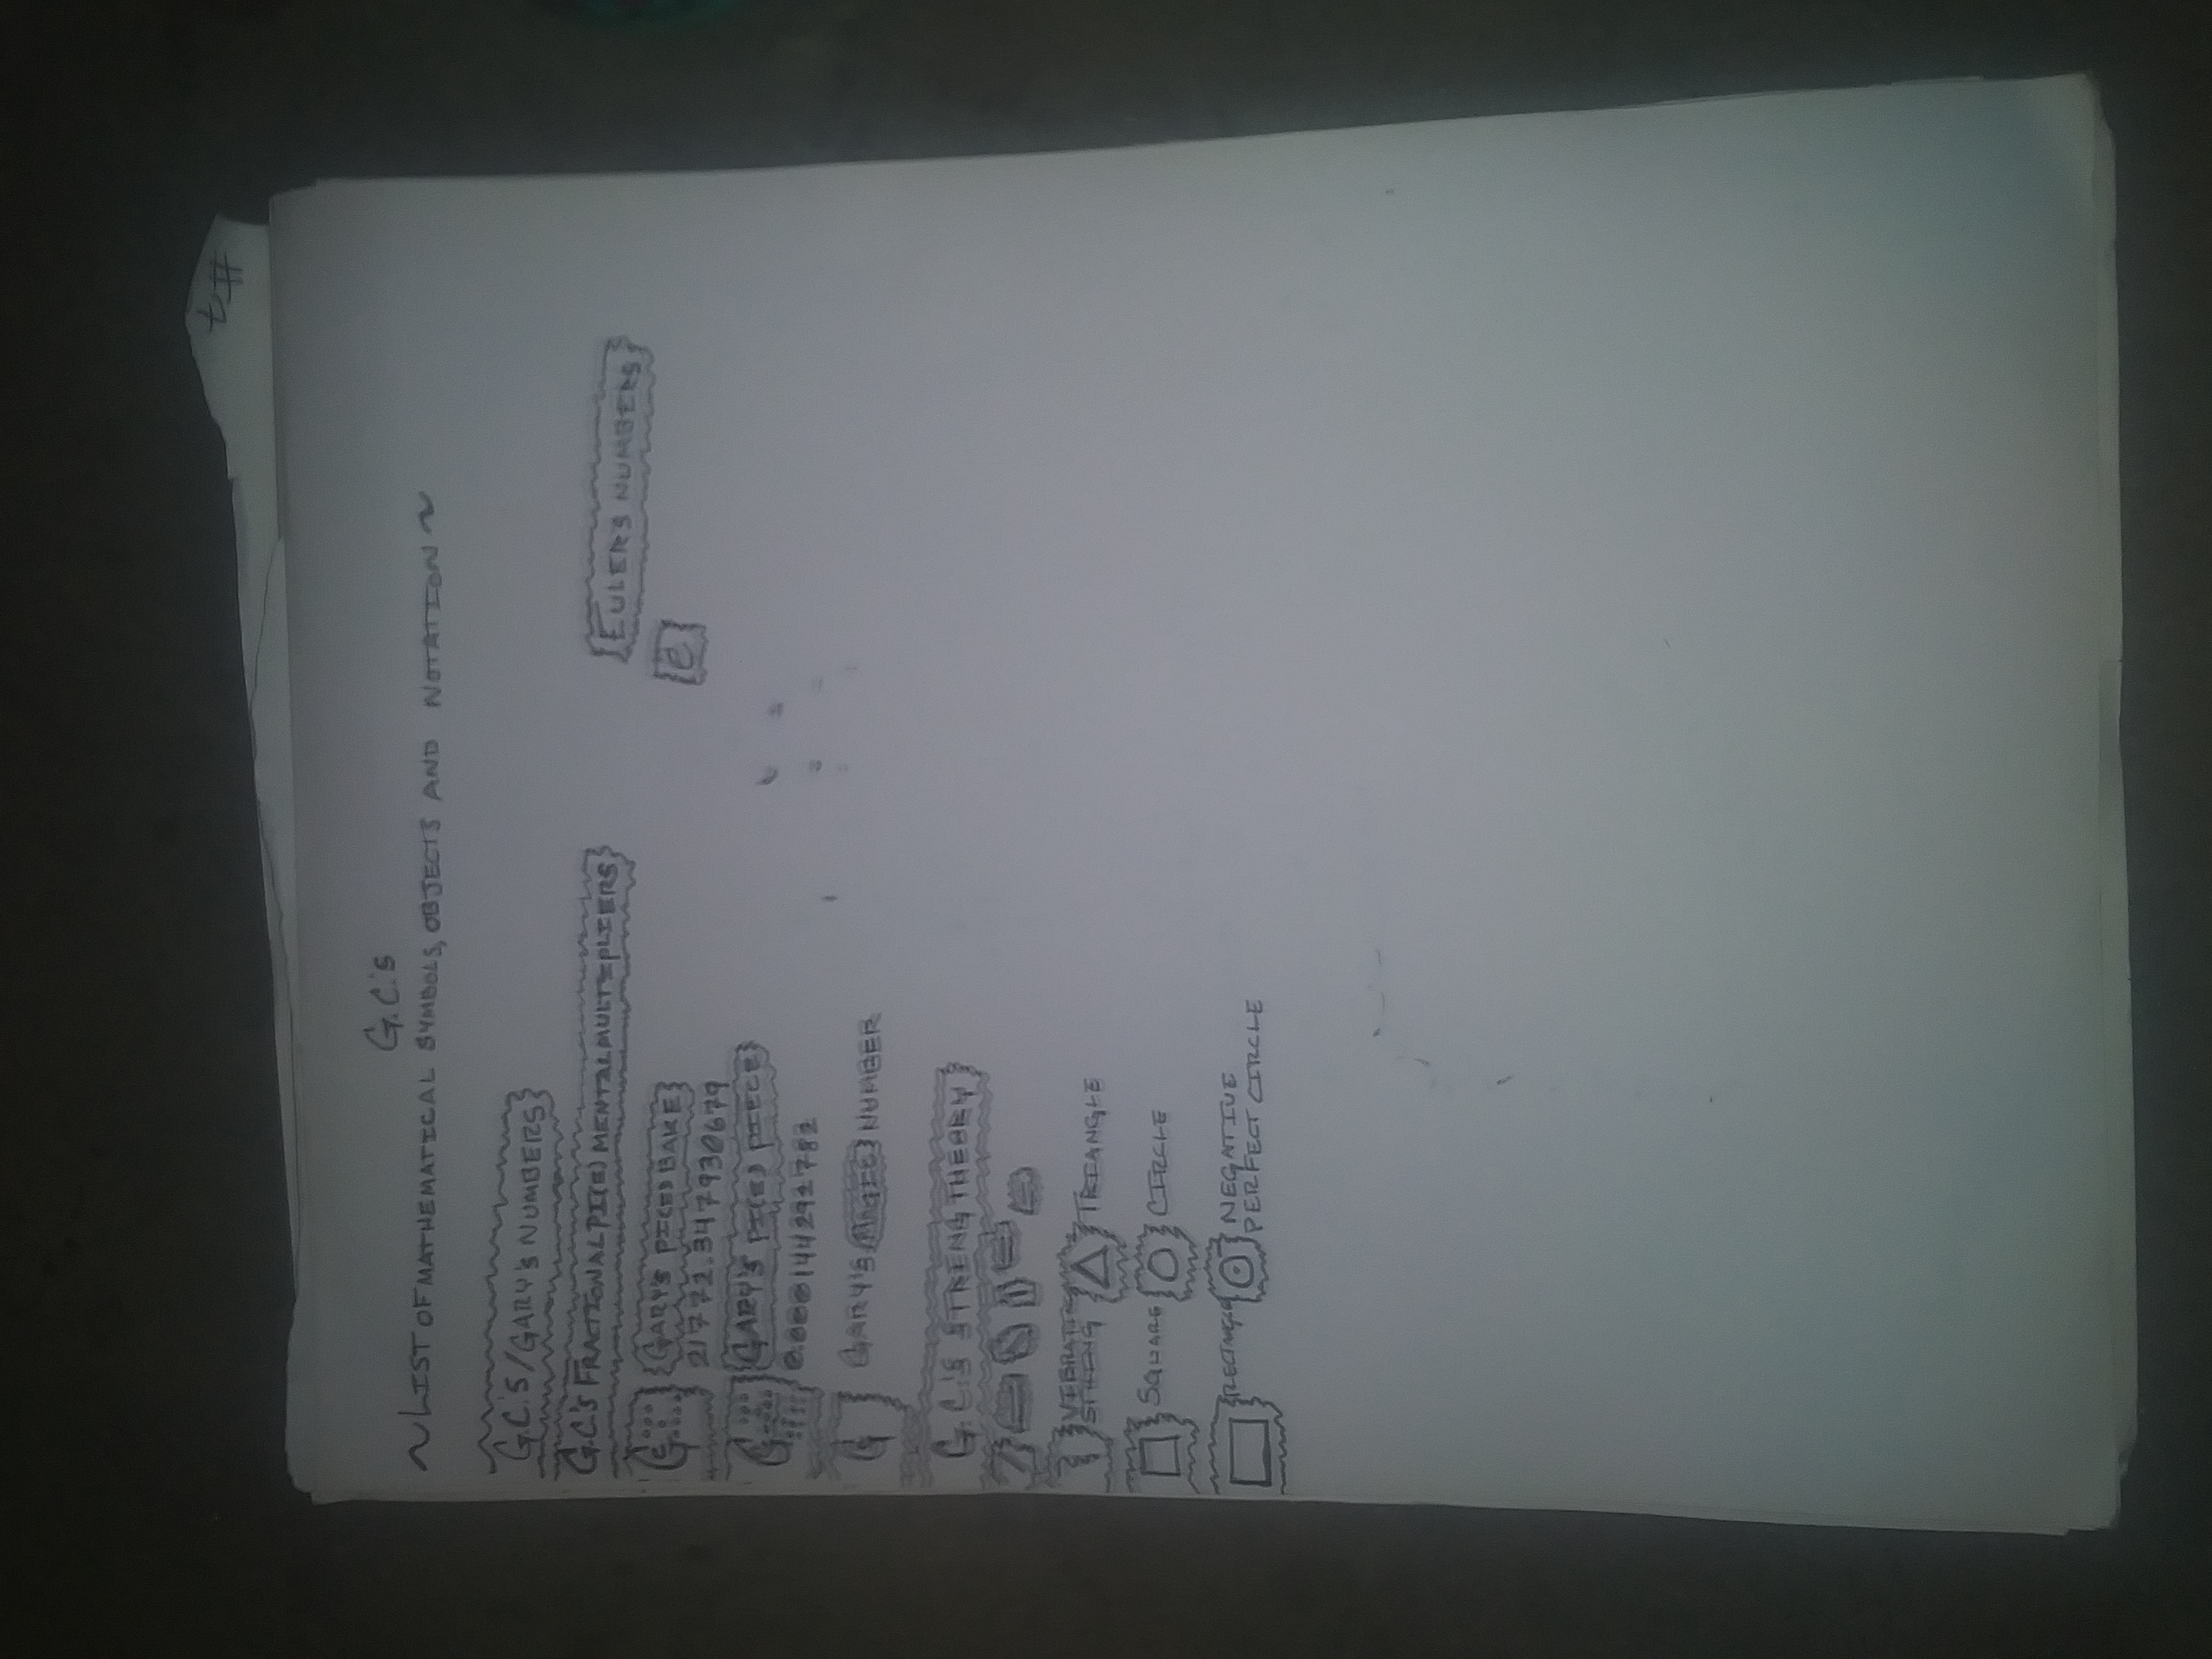 t#
G.C.'s
~LIST OF MATHEMATICAL SYMBOLS, OBJECTS AND NOTATION~
G.C.'S/GARY'S NUMBERS
G.C.'S FRACTIONAL PI(E) MENTAL MULTIPLIERS
EULER'S NUMBERS
GARY'S PI(E) BAKE
e
21772.347930679
GARY'S PI(E) PIECE
0.000144292782
G GARY'S MAGIC NUMBER
G.C.'S STRING THEORY
VIBRATING
STRING
TRIANGLE
SQUARE CIRCLE
RECTANGLE NEGATIVE
PERFECT CIRCLE